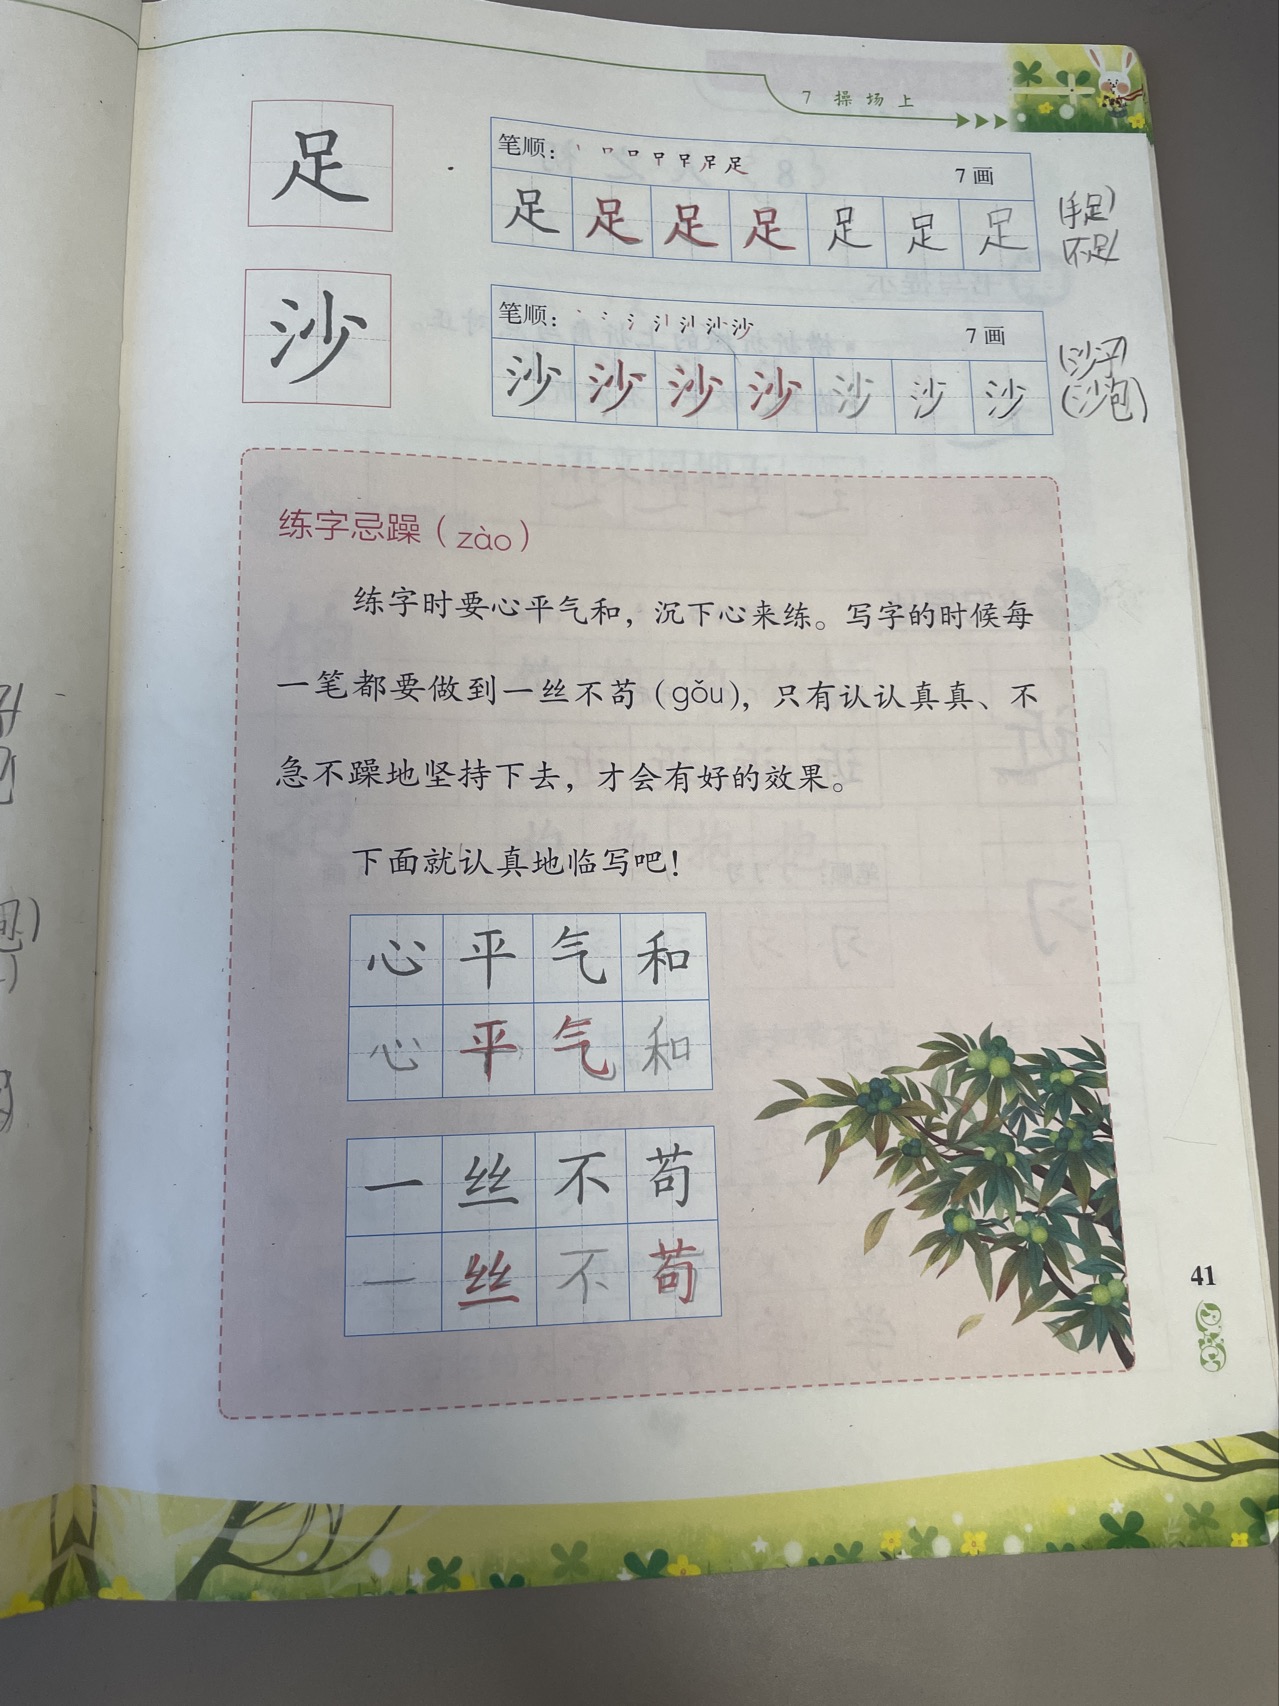 7 操场上
足
笔顺： 7画
足 足 足 足 足 足 足
(手足)
不足
沙
笔顺： 7画
沙 沙 沙 沙 沙 沙 沙
(沙子)
(沙包)
练字忌躁（zào）
练字时要心平气和，沉下心来练。写字的时候每
一笔都要做到一丝不苟（gǒu），只有认认真真、不
急不躁地坚持下去，才会有好的效果。
下面就认真地临写吧！
心 平 气 和
心 平 气 和
一 丝 不 苟
一 丝 不 苟
41